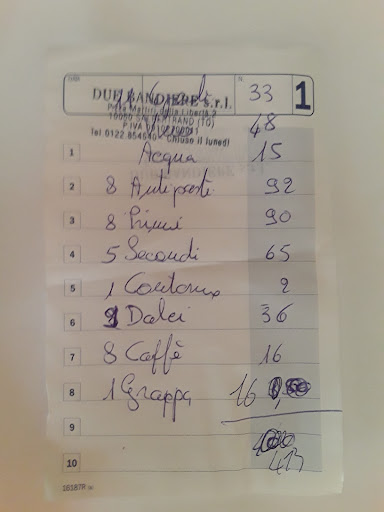 N. 33 1
DUE BANDIERE s.r.l.
Piazza Martiri della Libertà 2
10050 SALBERTRAND (TO)
Tel. 0122.854640 - Chiuso il lunedì
48
1 Acqua 15
2 8 Antipasti 92
3 8 Primi 90
4 5 Secondi 65
5 1 Contorno 2
6 9 Dolci 36
7 8 Caffè 16
8 1 Grappa 16
9
10 413
16187R